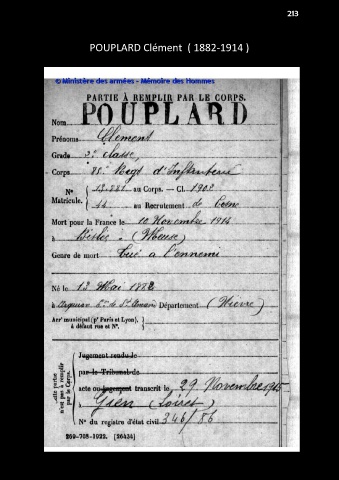 213
POUPLARD Clément ( 1882-1914 )
© Ministère des armées - Mémoire des Hommes
PARTIE À REMPLIR PAR LE CORPS.
Nom POUPLARD
Prénoms Clément
Grade 2e classe
Corps 85e Regt d'Infanterie
N° Matricule. 13.221 au Corps. — Cl. 1902
44 au Recrutement de Cosne
Mort pour la France le 10 Novembre 1914
à (Meuse)
Genre de mort Tué a l'ennemi
Né le 12 Mai 1882
à Département (Nièvre)
Arrt municipal (pr Paris et Lyon), à défaut rue et N°.
Jugement rendu le
par le Tribunal de
acte ou jugement transcrit le 29 Novembre 1915
à Gien (Loiret)
N° du registre d'état civil 346/86
Cette partie n'est pas à remplir par le Corps.
269-708-1922. [26434]